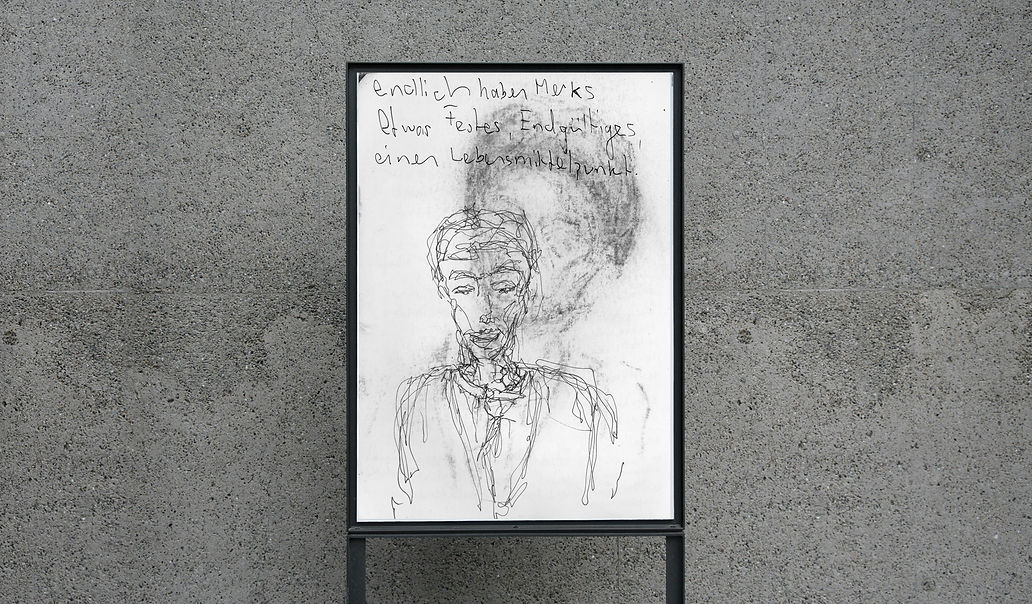 endlich haben Merks
etwas Festes, Endgültiges,
einen Lebensmittelpunkt.